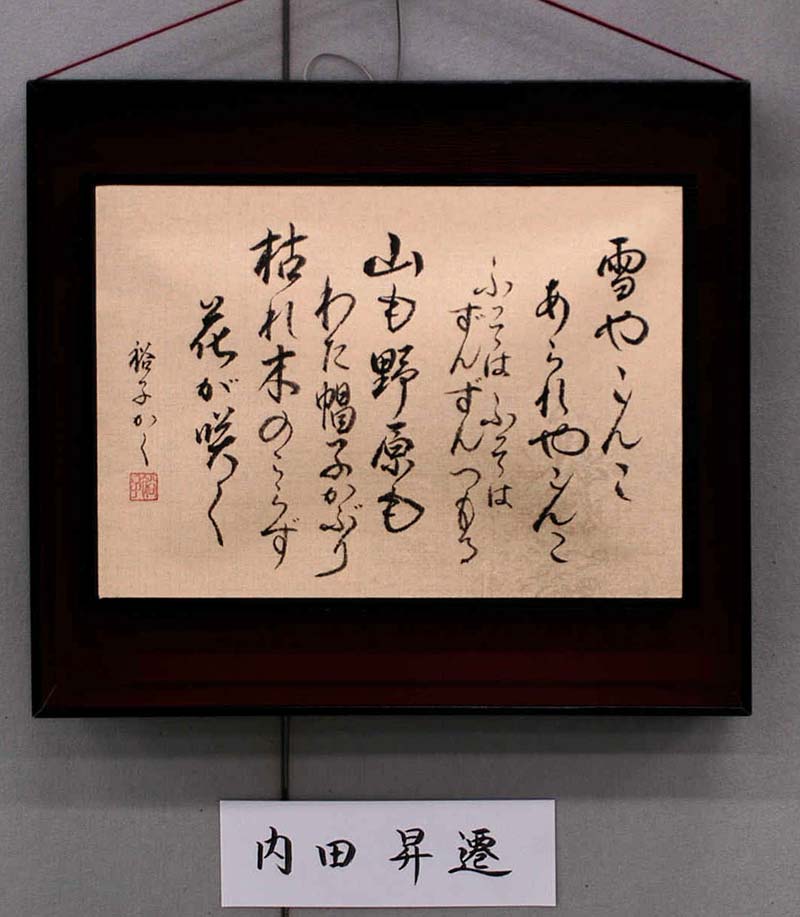 雪やこんこ
あられやこんこ
ふっては ふっては
ずんずんつもる
山も野原も
わた帽子かぶり
枯れ木のこらず
花が咲く
裕子かく
内田昇遷